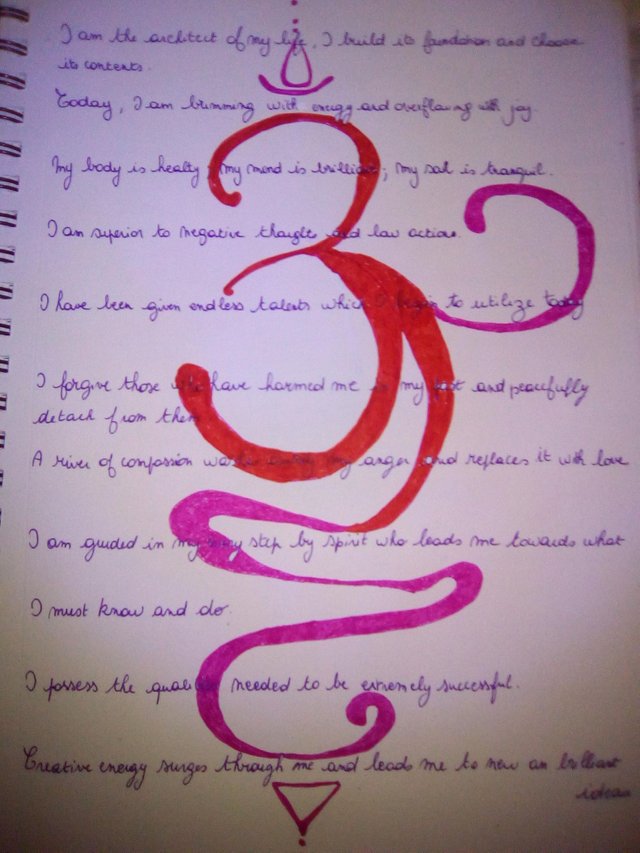 I am the architect of my life, I build its foundation and choose
its contents.
Today, I am brimming with energy and overflowing with joy
My body is healty; my mind is brilliant; my soul is tranquil.
I am superior to negative thoughts and low actions.
I have been given endless talents which I begin to utilize today
I forgive those who have harmed me in my past and peacefully
detach from them
A river of compassion washes my anger and replaces it with love
I am guided in my every step by spirit who leads me towards what
I must know and do.
I possess the qualities needed to be extremely successful.
Creative energy surges through me and leads me to new an brilliant
ideas